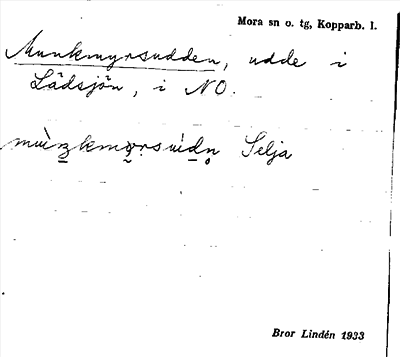 Mora sn o. tg, Kopparb. l.
Munkmyrsudden, udde i
Lådsjön, i NO.
Selja
Bror Lindén 1933